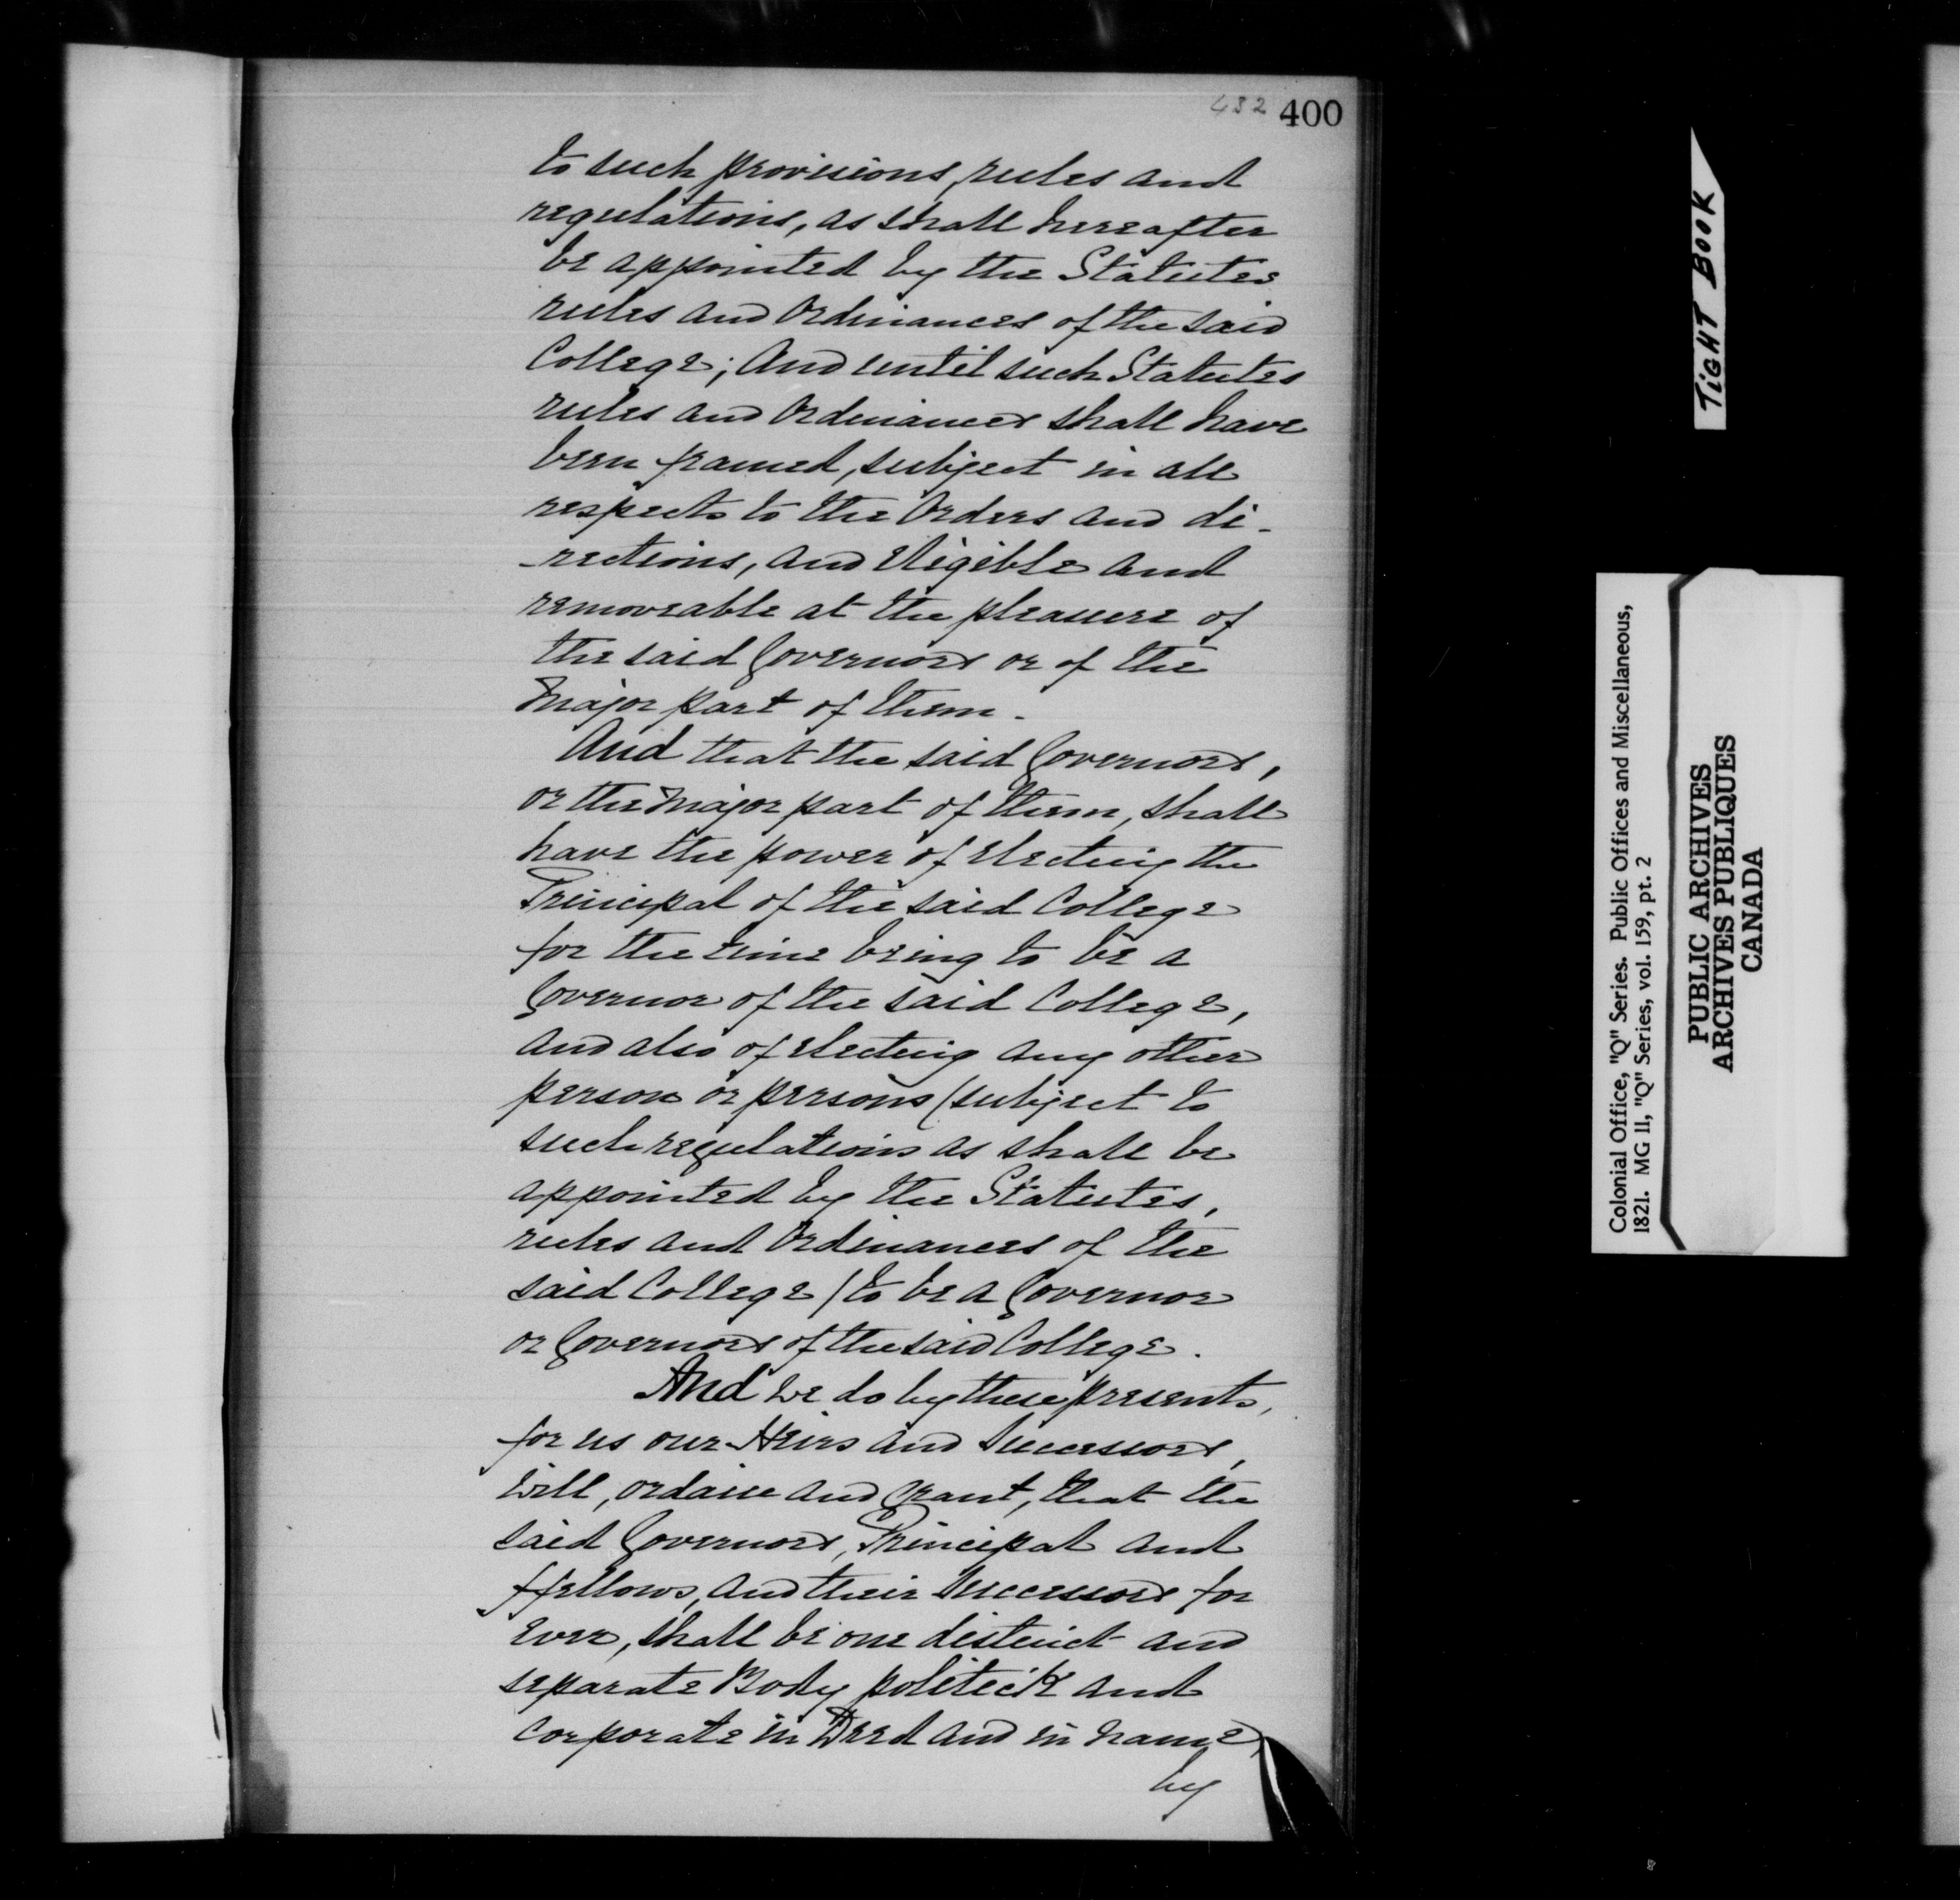 432 400
to such provisions, rules and
regulations, as shall hereafter
be appointed by the Statutes
rules and Ordinances of the said
College; And until such Statutes
rules and Ordinances shall have
been framed, subject in all
respects to the Orders and di-
-rections, and eligible and
removeable at the pleasure of
the said Governors or of the
Major part of them.
And that the said Governors,
or the Major part of them, shall
have the power of electing the
Principal of the said College
for the time being to be a
Governor of the said College,
and also of electing any other
person or persons (subject to
such regulations as shall be
appointed by the Statutes,
rules and Ordinances of the
said College) to be a Governor
or Governors of the said College.
And we do by these presents,
for us our Heirs and Successors,
will, ordain and grant, that the
said Governors, Principal and
ffellows, and their Successors for
ever, shall be one distinct and
separate Body politick and
Corporate in Deed and in name,
by
TIGHT BOOK
Colonial Office, "Q" Series. Public Offices and Miscellaneous,
1821. MG 11, "Q" Series, vol. 159, pt. 2
PUBLIC ARCHIVES
ARCHIVES PUBLIQUES
CANADA